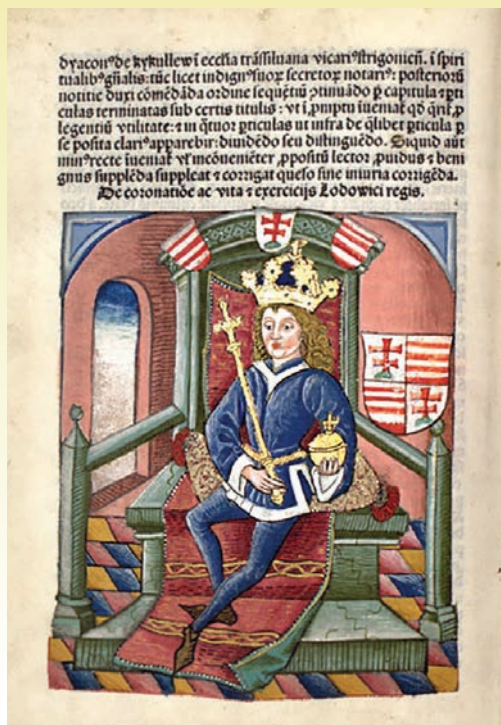 dyaconꝰ de kykullew ī eccl̄ia trāssiluana vicariꝰ strigonieñ. ī spiri
tualibꝰ gñalis: tūc licet indignꝰ suoꝝ secretoꝝ notariꝰ: posterioꝝ
notitie duxi cōmēdāda ordine sequētiū ↄtinuādo ꝑ capitula ⁊ ꝑti
culas terminatas sub certis titulis: vt ī ꝓmptu īueniaƭ qđ ꝑ
legentiū vtilitate: ⁊ in qͣtuor ꝑticulas ut infra de qͣlibet ꝑticula ꝑ
se posita clariꝰ apparebit: diuidēdo seu distinguēdo. Siquid aūt
minꝰ recte īueniaƭ vꝉ incōueniēter ꝓpositū lector ꝓuidus ⁊ beni
gnus supplēda suppleat ⁊ corrigat queso sine iniuria corrigēda.
De coronatiōe ac vita ⁊ exercicijs Lodowici regis.